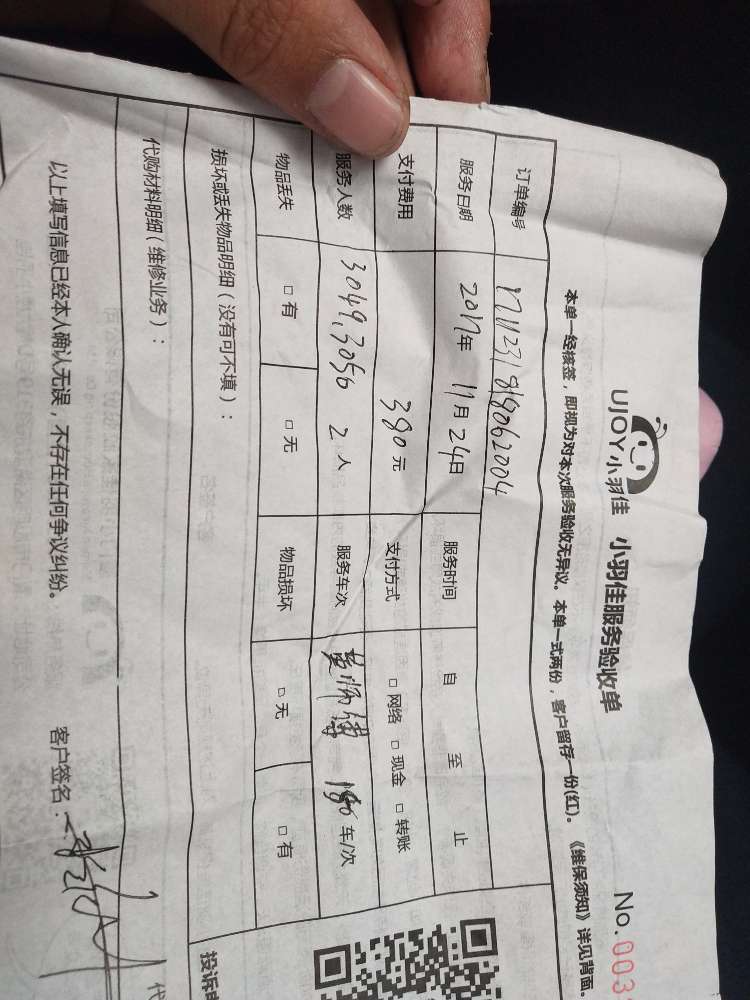 UJOY小羽佳 小羽佳服务验收单 No.003
本单一经核签，即视为对本次服务验收无异议。本单一式两份，客户留存一份(红)。《维保须知》详见背面。
订单编号
服务日期 2017年 11月 24日 服务时间 自 至 止
支付费用 380元 支付方式 □ 网络 □ 现金 □ 转账
服务人数 3049.3056 2人 服务车次 师傅 180 车/次
物品丢失 □ 有 □ 无 物品损坏 □ 无 □ 有
损坏或丢失物品明细（没有可不填）：
代购材料明细（维修业务）：
以上填写信息已经本人确认无误，不存在任何争议纠纷。 客户签名： 代
投诉